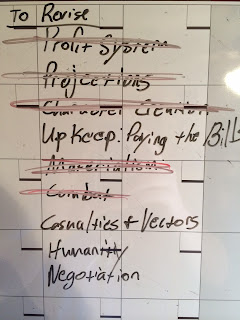 To Revise
Profit System
Projections
Character Creation
Upkeep: Paying the Bills
Materialism
Combat
Casualties & Vectors
Humanity
Negotiation